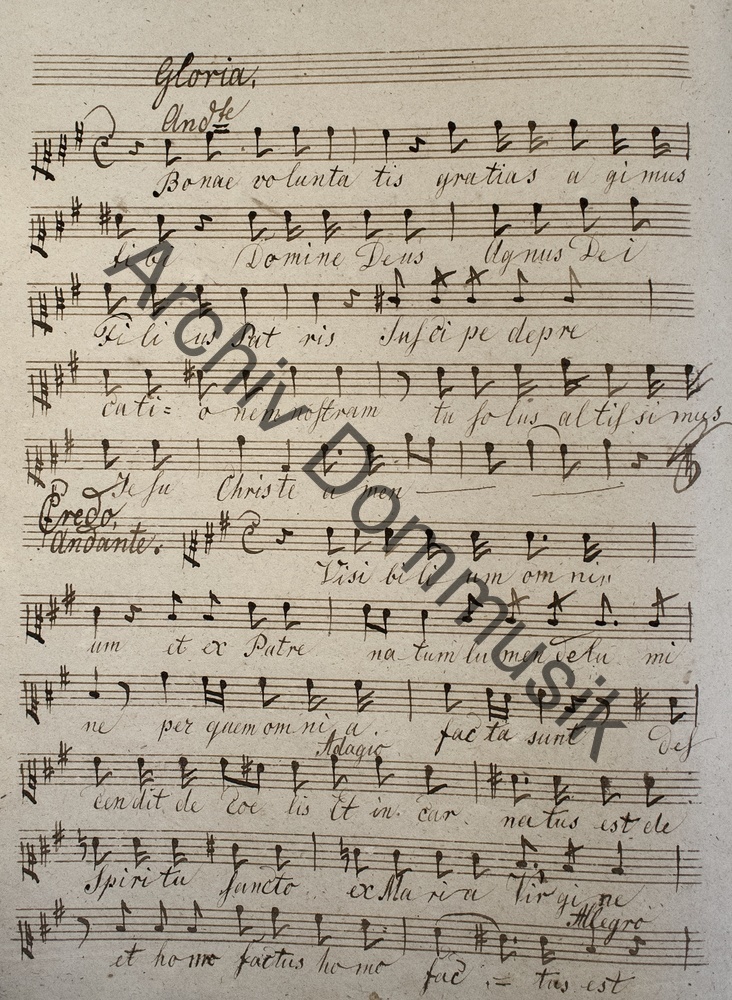 Gloria.
And.te
Bonae volunta tis gratias a gimus
tibi Domine Deus Agnus Dei
Fi li us Pat ris Susci pe depre
cati= o nem nostram tu so lus altis si mus
Jesu Christe a men
Credo.
Andante.
Visi bi li um om niu
um et ex Patre na-tum lu men de lu mi
ne per quem om ni a. fac ta sunt Des
Adagio
cen dit de Coe lis Et in car natus est de
Spiritu sancto ex Ma ri a Vir gi ne
Allegro
et ho mo factus ho mo fac = tus est
Archiv Dommusik